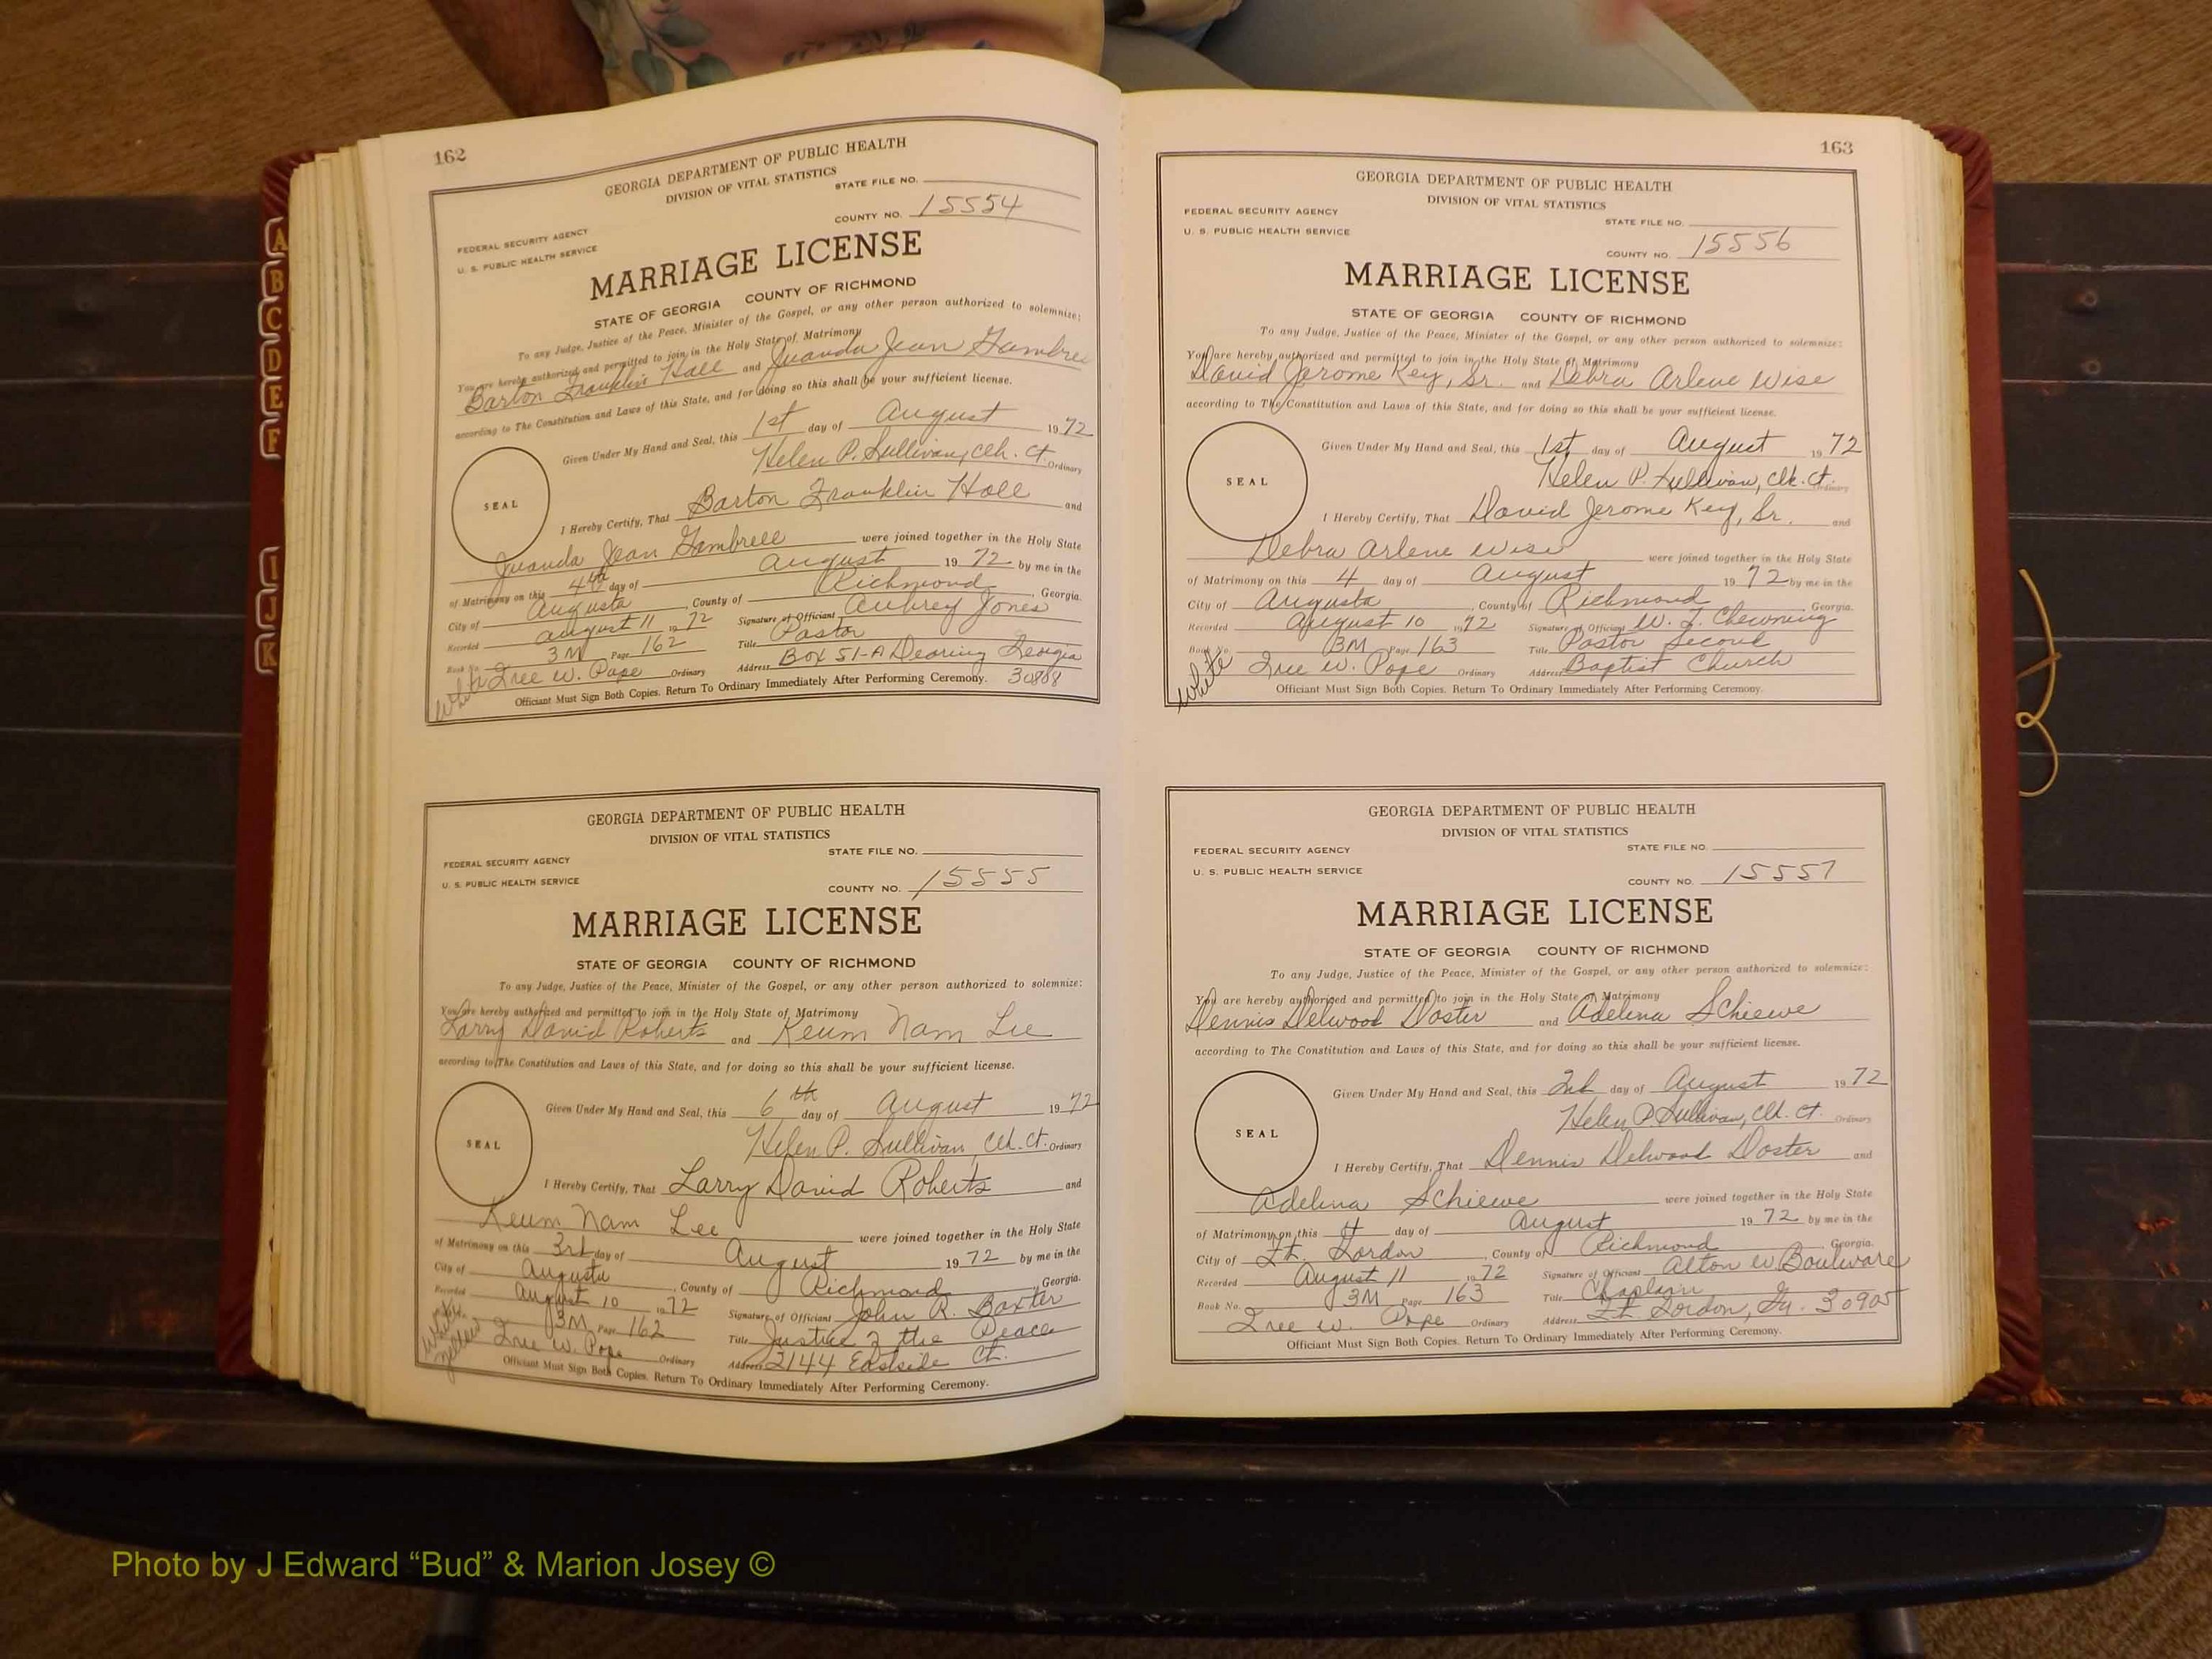 A
B
C
D
E
F
I
J
K
162
GEORGIA DEPARTMENT OF PUBLIC HEALTH
DIVISION OF VITAL STATISTICS
STATE FILE NO.
COUNTY NO. 15554
FEDERAL SECURITY AGENCY
U. S. PUBLIC HEALTH SERVICE
MARRIAGE LICENSE
STATE OF GEORGIA COUNTY OF RICHMOND
To any Judge, Justice of the Peace, Minister of the Gospel, or any other person authorized to solemnize:
You are hereby authorized and permitted to join in the Holy State of Matrimony
Barton Franklin Hall and Juanda Jean Gambrell
according to The Constitution and Laws of this State, and for doing so this shall be your sufficient license.
Given Under My Hand and Seal, this 1st day of August 1972
Helen P. Sullivan, Clk. Ct. Ordinary
SEAL
I Hereby Certify, That Barton Franklin Hall and
Juanda Jean Gambrell were joined together in the Holy State
of Matrimony on this 4th day of August 1972 by me in the
City of Augusta, County of Richmond, Georgia.
Recorded August 11 1972 Signature of Officiant Aubrey Jones
Book No. 3M Page 162 Title Pastor
Tree W. Pope Ordinary Address Box 51-A Dearing Georgia
White
Officiant Must Sign Both Copies. Return To Ordinary Immediately After Performing Ceremony. 30808
GEORGIA DEPARTMENT OF PUBLIC HEALTH
DIVISION OF VITAL STATISTICS
STATE FILE NO.
FEDERAL SECURITY AGENCY
U. S. PUBLIC HEALTH SERVICE
COUNTY NO. 15555
MARRIAGE LICENSE
STATE OF GEORGIA COUNTY OF RICHMOND
To any Judge, Justice of the Peace, Minister of the Gospel, or any other person authorized to solemnize:
You are hereby authorized and permitted to join in the Holy State of Matrimony
Larry David Roberts and Keum Nam Lee
according to The Constitution and Laws of this State, and for doing so this shall be your sufficient license.
Given Under My Hand and Seal, this 6th day of August 1972
Helen P. Sullivan, Clk. Ct. Ordinary
SEAL
I Hereby Certify, That Larry David Roberts and
Keum Nam Lee were joined together in the Holy State
of Matrimony on this 3rd day of August 1972 by me in the
City of Augusta, County of Richmond, Georgia.
Recorded August 10 1972 Signature of Officiant John R. Baxter
3M Page 162 Title Justice of the Peace
Tree W. Pope Ordinary Address 2144 Eastside Ct.
White
Yellow
Officiant Must Sign Both Copies. Return To Ordinary Immediately After Performing Ceremony.
163
GEORGIA DEPARTMENT OF PUBLIC HEALTH
DIVISION OF VITAL STATISTICS
FEDERAL SECURITY AGENCY
U. S. PUBLIC HEALTH SERVICE
STATE FILE NO.
COUNTY NO. 15556
MARRIAGE LICENSE
STATE OF GEORGIA COUNTY OF RICHMOND
To any Judge, Justice of the Peace, Minister of the Gospel, or any other person authorized to solemnize:
You are hereby authorized and permitted to join in the Holy State of Matrimony
David Jerome Key, Sr. and Debra Arlene Wise
according to The Constitution and Laws of this State, and for doing so this shall be your sufficient license.
Given Under My Hand and Seal, this 1st day of August 1972
Helen P. Sullivan, Clk. Ct. Ordinary
SEAL
I Hereby Certify, That David Jerome Key, Sr. and
Debra Arlene Wise were joined together in the Holy State
of Matrimony on this 4 day of August 1972 by me in the
City of Augusta, County of Richmond, Georgia.
Recorded August 10 1972 Signature of Officiant W. J. Chewning
Book No. 3M Page 163 Title Pastor Second
Tree W. Pope Ordinary Address Baptist Church
White
Officiant Must Sign Both Copies. Return To Ordinary Immediately After Performing Ceremony.
GEORGIA DEPARTMENT OF PUBLIC HEALTH
DIVISION OF VITAL STATISTICS
FEDERAL SECURITY AGENCY
U. S. PUBLIC HEALTH SERVICE
STATE FILE NO.
COUNTY NO. 15557
MARRIAGE LICENSE
STATE OF GEORGIA COUNTY OF RICHMOND
To any Judge, Justice of the Peace, Minister of the Gospel, or any other person authorized to solemnize:
You are hereby authorized and permitted to join in the Holy State of Matrimony
Dennis Delwood Doster and Adelina Schiewe
according to The Constitution and Laws of this State, and for doing so this shall be your sufficient license.
Given Under My Hand and Seal, this 2nd day of August 1972
Helen P. Sullivan, Clk. Ct. Ordinary
SEAL
I Hereby Certify, That Dennis Delwood Doster and
Adelina Schiewe were joined together in the Holy State
of Matrimony on this 4 day of August 1972 by me in the
City of Ft. Gordon, County of Richmond, Georgia.
Recorded August 11 1972 Signature of Officiant Alton W Boulware
Book No. 3M Page 163 Title Chaplain
Tree W. Pope Ordinary Address Ft. Gordon, Ga. 30905
Officiant Must Sign Both Copies. Return To Ordinary Immediately After Performing Ceremony.
Photo by J Edward “Bud” & Marion Josey ©